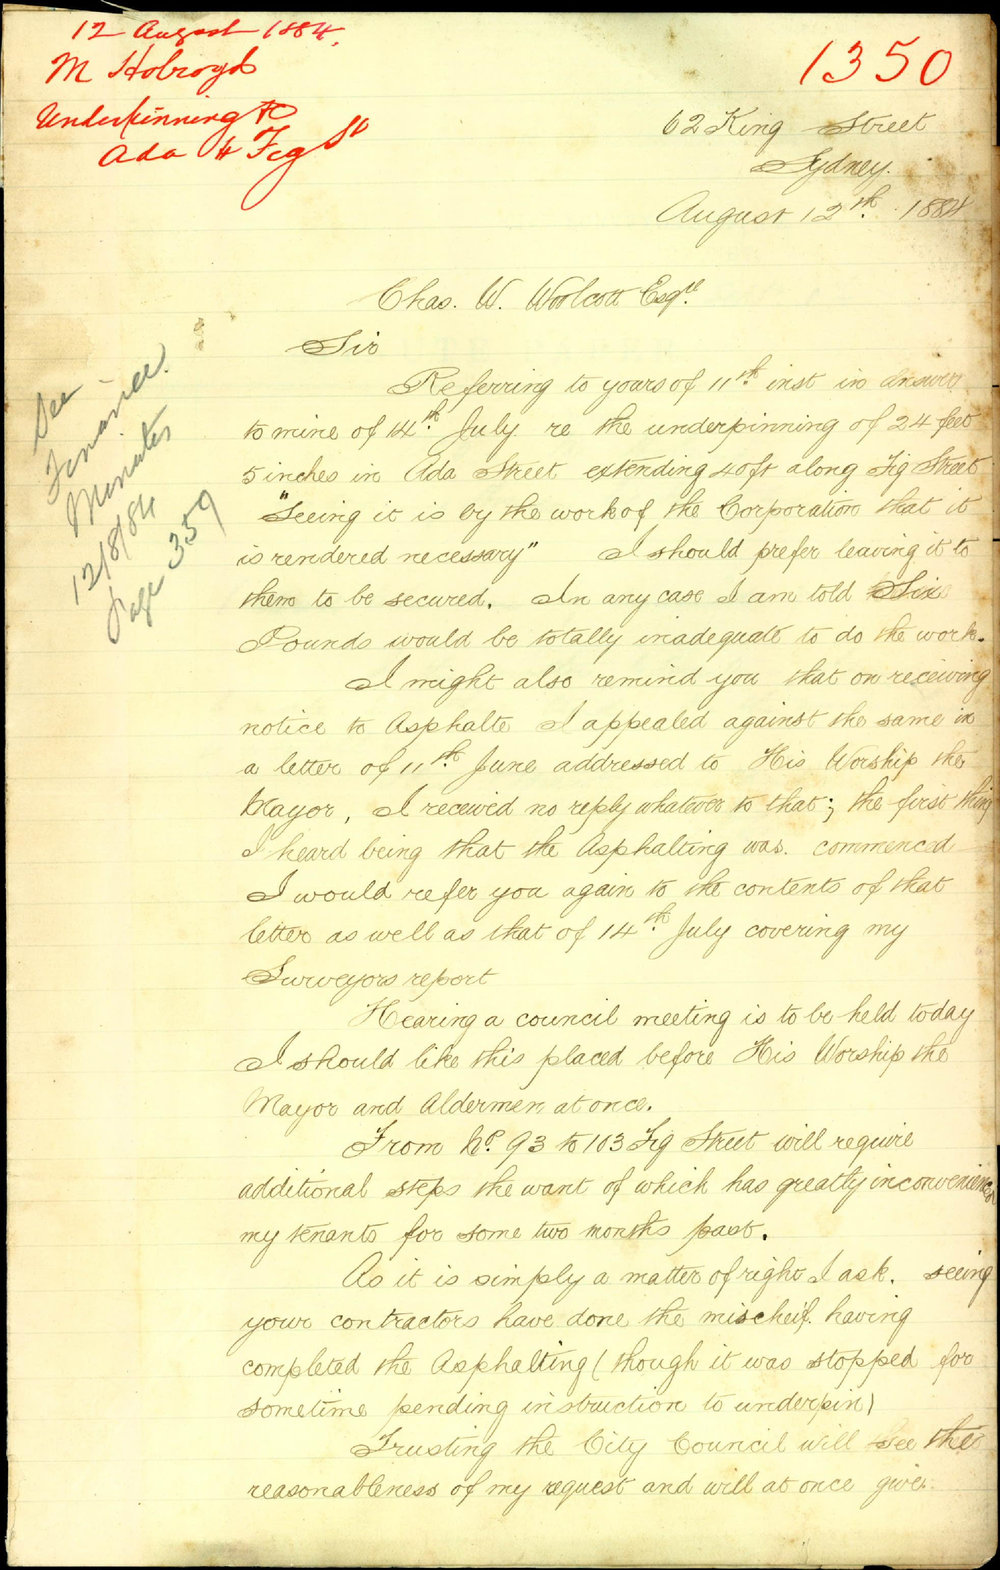 12 August 1884.
M Holroyd
Underpinning to
Ada & Fig St
1350
62 King Street
Sydney.
August 12th. 1884
Chas. W. Woolcott Esqre.
Sir
See
Finance
Minutes
12/8/84
Page 359
Referring to yours of 11th inst in answer
to mine of 14th July re the underpinning of 24 feet
5 inches in Ada Street extending 40ft along Fig Street
"Seeing it is by the work of the Corporation that it
is rendered necessary" I should prefer leaving it to
them to be secured. In any case I am told Six
Pounds would be totally inadequate to do the work.
I might also remind you that on receiving
notice to Asphalte I appealed against the same in
a letter of 11th June addressed to His Worship the
Mayor, I received no reply whatever to that; the first thing
I heard being that the Asphalting was. commenced
I would refer you again to the contents of that
letter as well as that of 14th July covering my
Surveyors report
Hearing a council meeting is to be held today
I should like this placed before His Worship the
Mayor and Aldermen at once.
From No. 93 to 103 Fig Street will require
additional steps the want of which has greatly inconvenienced
my tenants for some two months past.
As it is simply a matter of right I ask. seeing
your contractors have done the mischeif. having
completed the Asphalting (though it was stopped for
sometime pending instruction to underpin)
Trusting the City Council will see the
reasonableness of my request and will at once give.